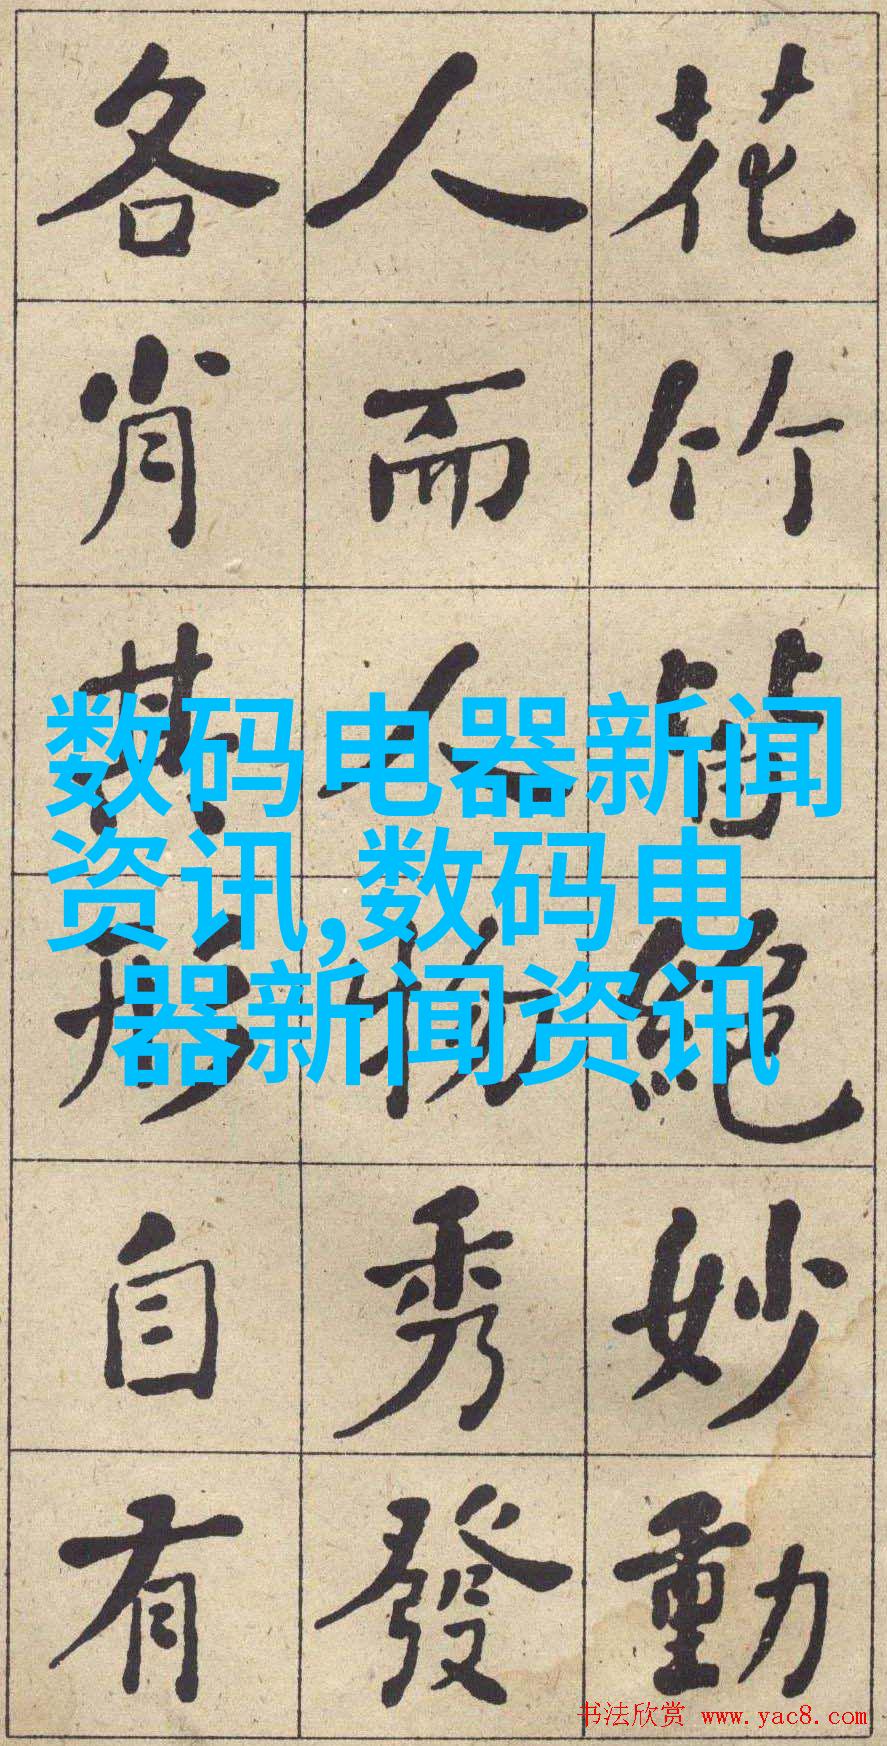 花竹皆絶妙動
人而人物秀發
各肖其形自有
数码电器新闻
资讯,数码电
器新闻资讯
书法欣赏 www.yac8.com